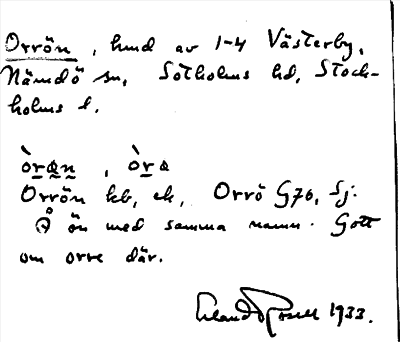 Orrön, hmd av 1-4 Västerby,
Nämdö sn, Sotholms hd, Stock-
holms l.
òrøn, òra
Orrön kb, ek, Orrö G70, Sj.
På ön med samma namn. Gott
om orre där.
Erland Rosell 1933.